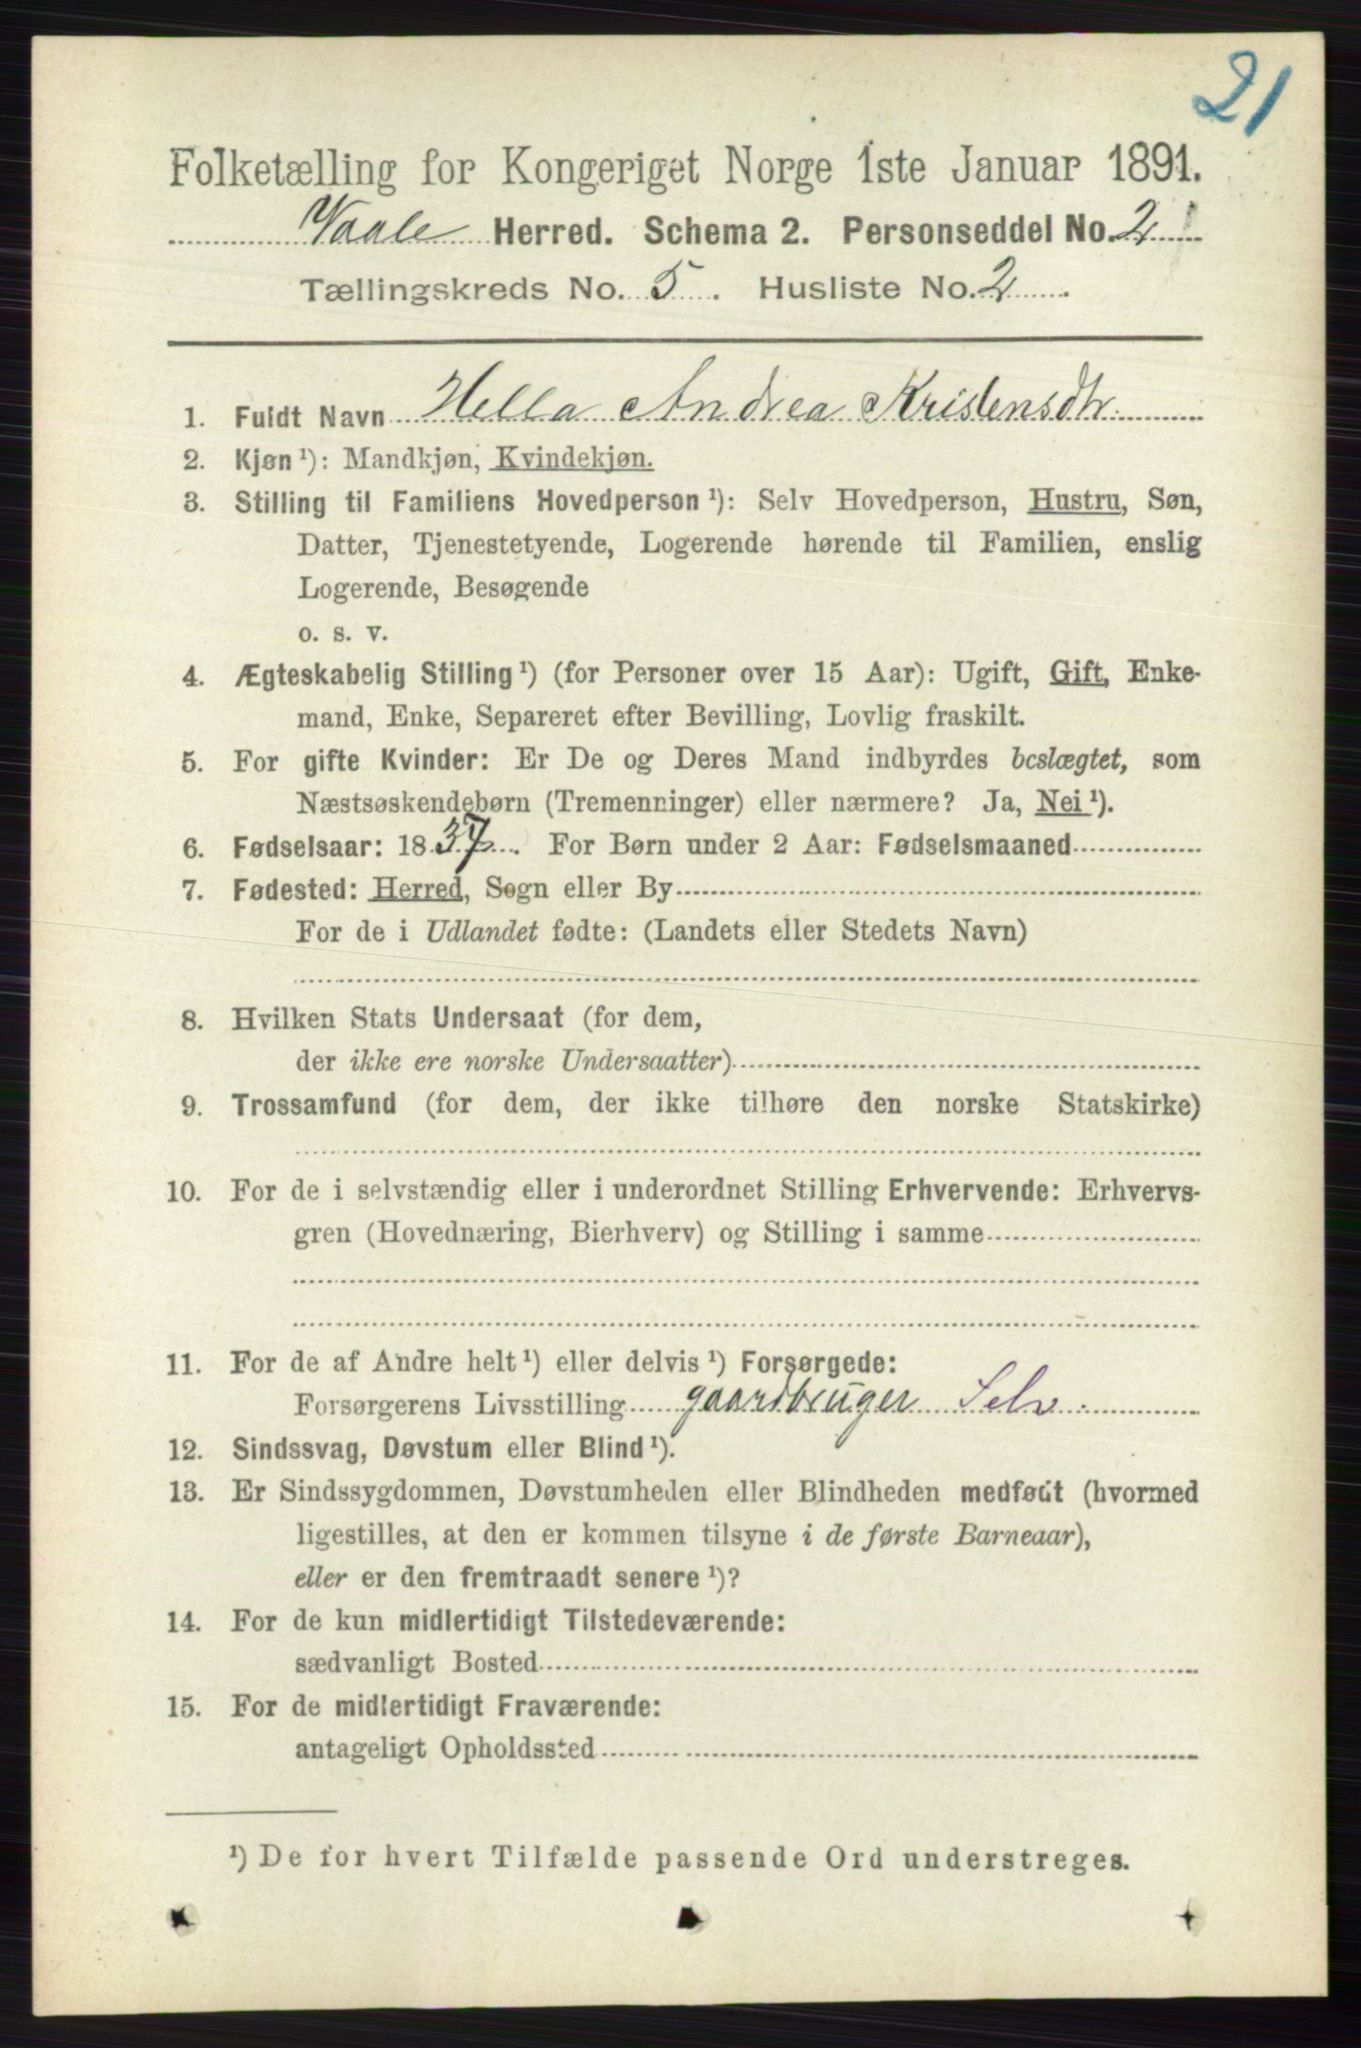 21
Folketælling for Kongeriget Norge 1ste Januar 1891.
Vaale Herred. Schema 2. Personseddel No. 2
Tællingskreds No. 5. Husliste No. 2
1. Fuldt Navn Hella Andrea Kristensdtr.
2. Kjøn ¹): Mandkjøn, Kvindekjøn.
3. Stilling til Familiens Hovedperson ¹): Selv Hovedperson, Hustru, Søn,
Datter, Tjenestetyende, Logerende hørende til Familien, enslig
Logerende, Besøgende
o. s. v.
4. Ægteskabelig Stilling ¹) (for Personer over 15 Aar): Ugift, Gift, Enke-
mand, Enke, Separeret efter Bevilling, Lovlig fraskilt.
5. For gifte Kvinder: Er De og Deres Mand indbyrdes beslægtet, som
Næstsøskendebørn (Tremenninger) eller nærmere? Ja, Nei ¹).
6. Fødselsaar: 1837. For Børn under 2 Aar: Fødselsmaaned
7. Fødested: Herred, Sogn eller By
For de i Udlandet fødte: (Landets eller Stedets Navn)
8. Hvilken Stats Undersaat (for dem,
der ikke ere norske Undersaatter)
9. Trossamfund (for dem, der ikke tilhøre den norske Statskirke)
10. For de i selvstændig eller i underordnet Stilling Erhvervende: Erhvervs-
gren (Hovednæring, Bierhverv) og Stilling i samme
11. For de af Andre helt ¹) eller delvis ¹) Forsørgede:
Forsørgerens Livsstilling gaardbruger Selv.
12. Sindssvag, Døvstum eller Blind ¹).
13. Er Sindssygdommen, Døvstumheden eller Blindheden medfødt (hvormed
ligestilles, at den er kommen tilsyne i de første Barneaar),
eller er den fremtraadt senere ¹)?
14. For de kun midlertidigt Tilstedeværende:
sædvanligt Bosted
15. For de midlertidigt Fraværende:
antageligt Opholdssted
¹) De for hvert Tilfælde passende Ord understreges.